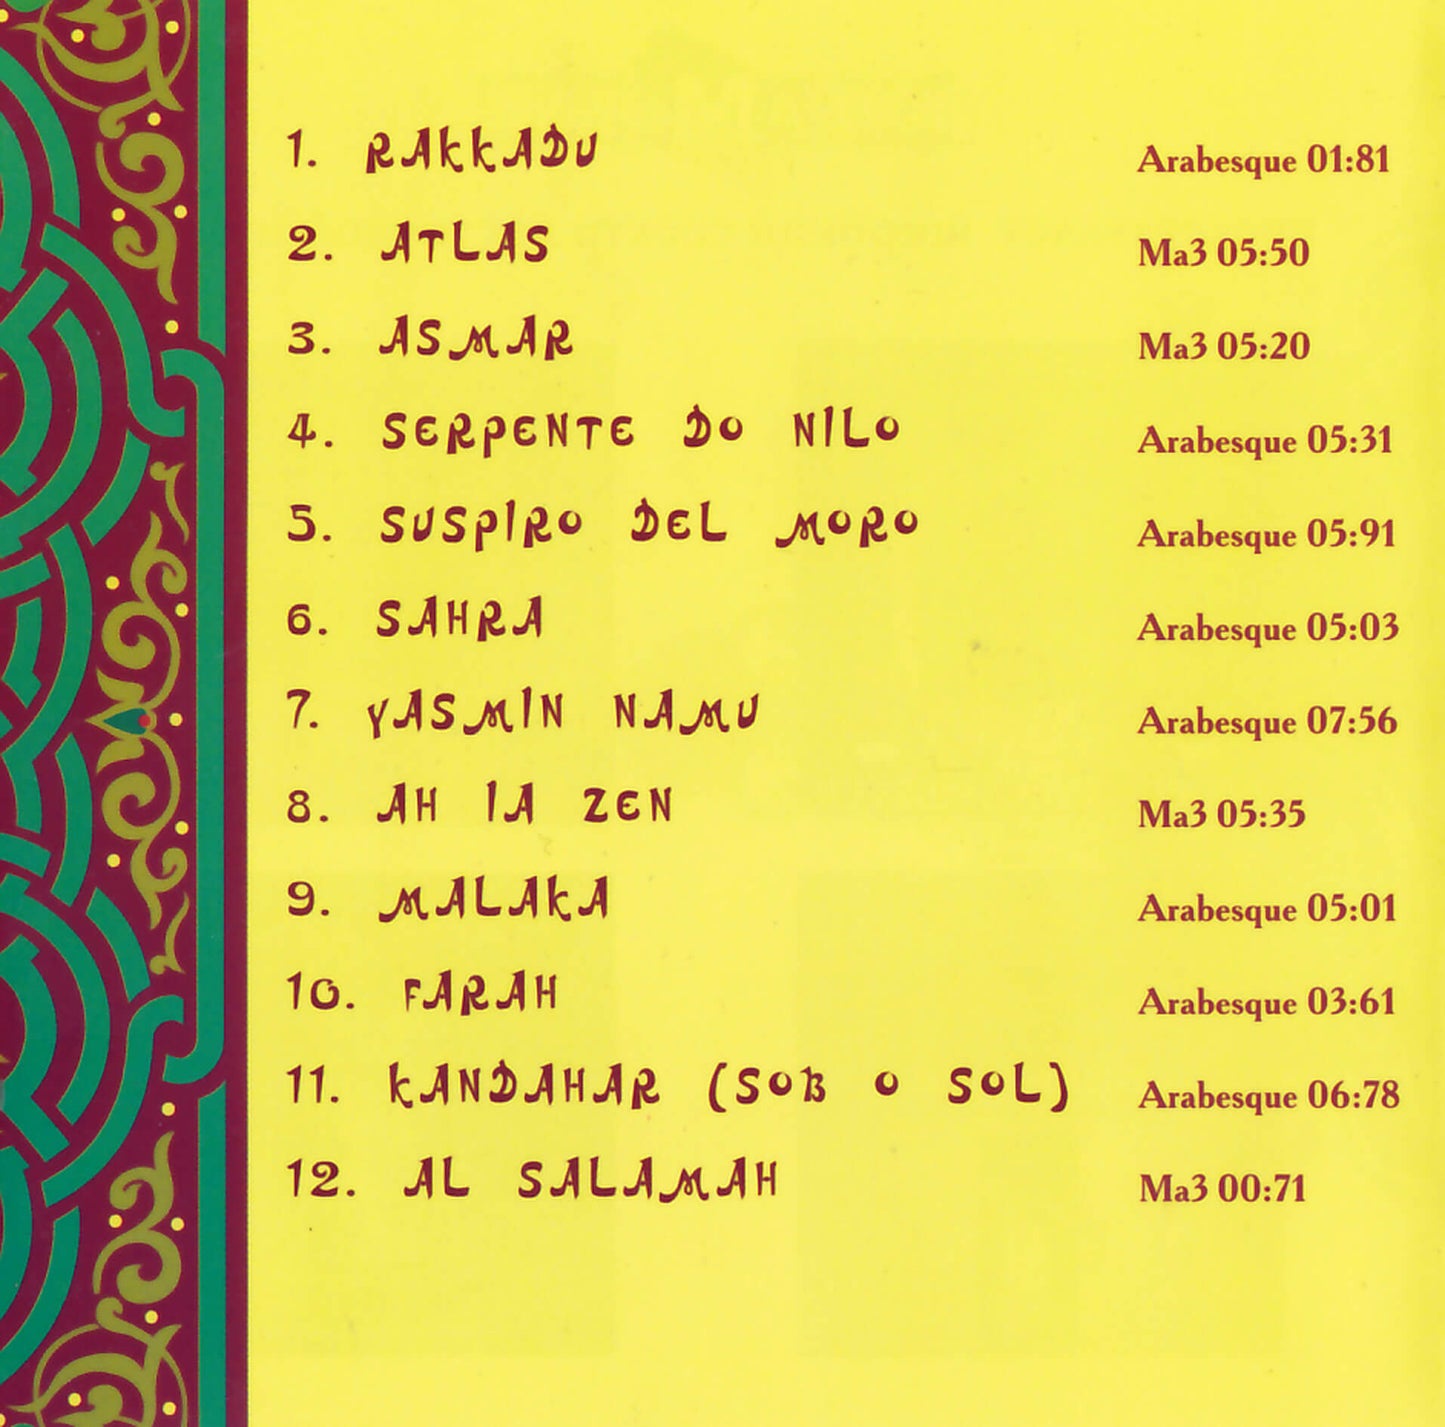 1. RAKKADU Arabesque 01:81
2. ATLAS Ma3 05:50
3. ASMAR Ma3 05:20
4. SERPENTE DO NILO Arabesque 05:31
5. SUSPIRO DEL MORO Arabesque 05:91
6. SAHRA Arabesque 05:03
7. YASMIN NAMU Arabesque 07:56
8. AH IA ZEN Ma3 05:35
9. MALAKA Arabesque 05:01
10. FARAH Arabesque 03:61
11. KANDAHAR (SOB O SOL) Arabesque 06:78
12. AL SALAMAH Ma3 00:71